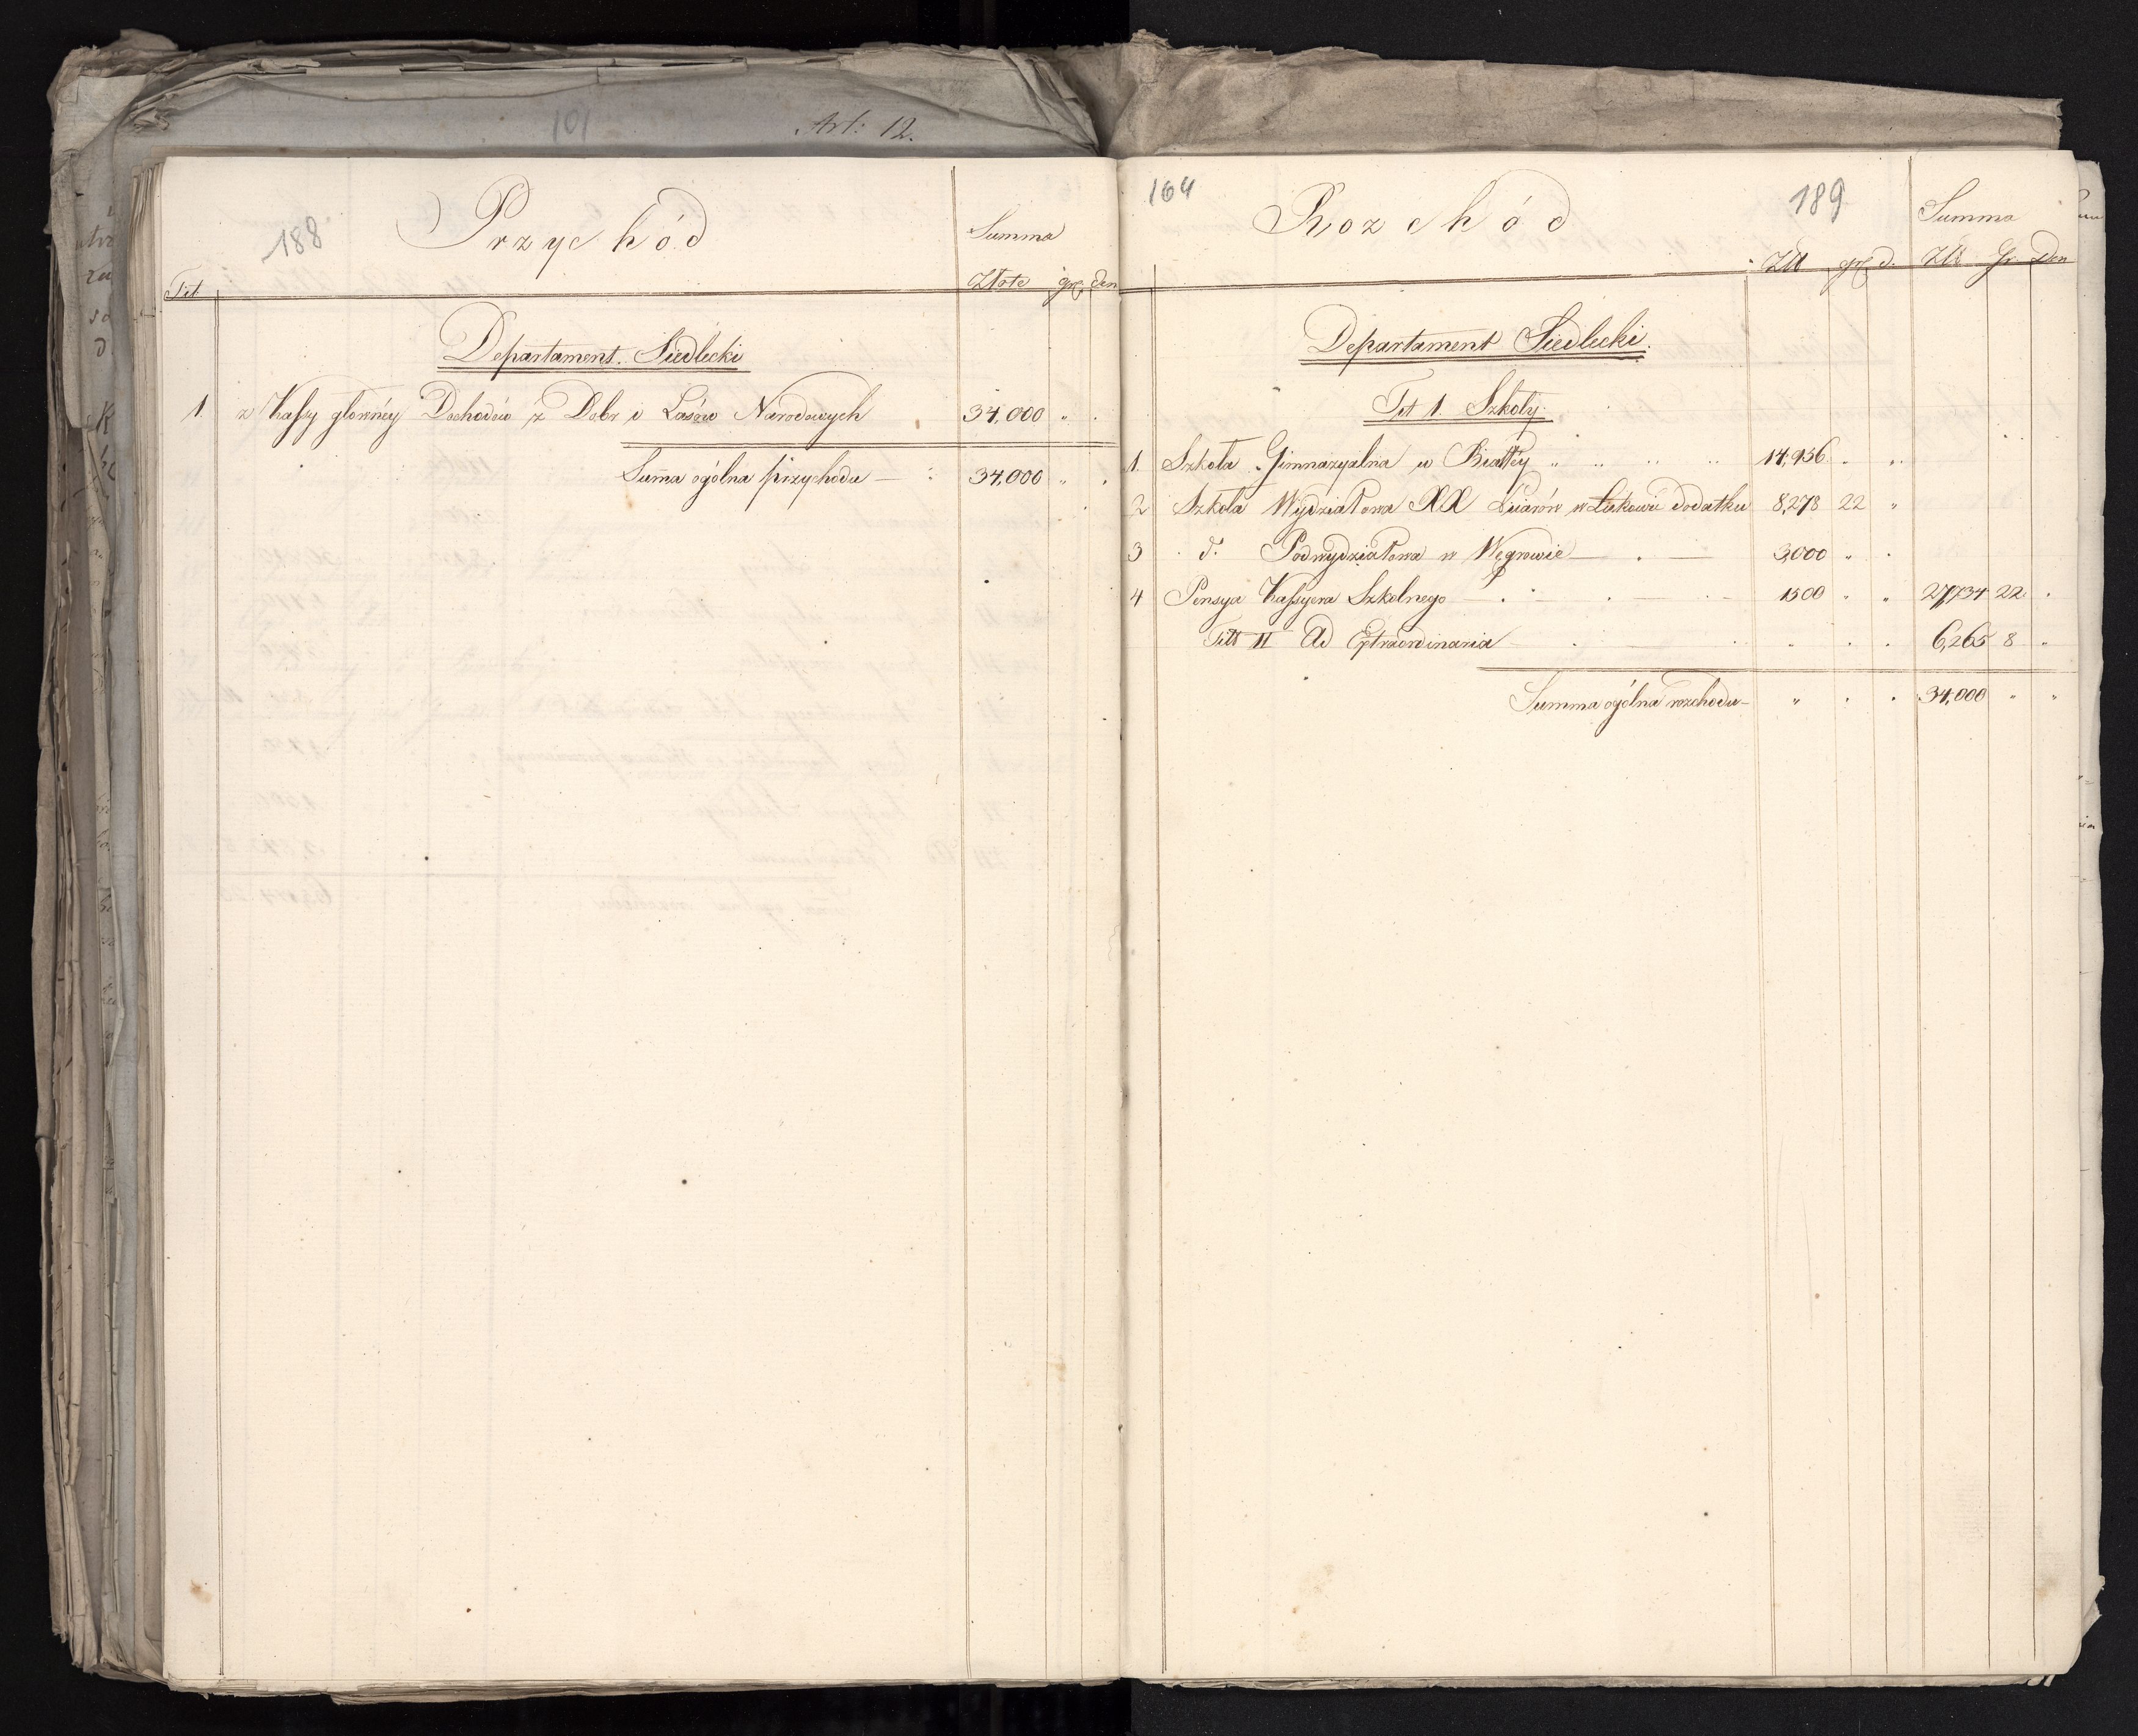 101 Art: 12.
188 Przychód Summa
Tit. Złote gr. den
Departament Siedlecki
1. z Kassy głownéy Dochodów z Dobr i Lasów Narodowych 34,000 " .
Sum̅a ogólna przychodu — : 34,000 " .
164 Rozchód 189 Summa
Złł gr. d. Złł Gr. Den
Departament Siedlecki.
Tit 1. Szkoły.
1. Szkoła Gimnazyalna w Białéy " " " " 14,956. " "
2 Szkoła Wydziałowa XX Piiarów w Łukowie dodatku 8,278 22 "
3 d. Podwydziałowa w Węgrowie — . — 3,000 " .
4 Pensya Kassyera Szkolnego — . — 1500 " " 27,734 22 .
Titt II Ad Extraordinaria 6,265 8 "
Summa ogólna rozchodu — " . . 34,000 " "